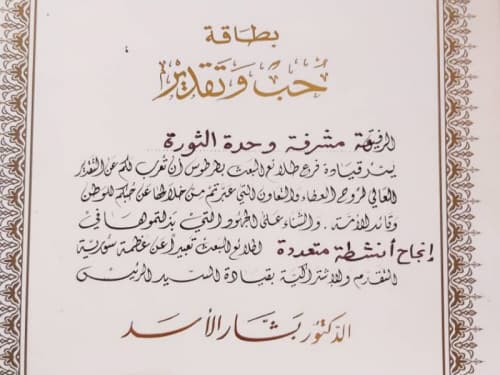 بطاقة
حُب وتقدير
الرفيقة مشرفة وحدة الثورة
يسر قيادة فرع طلائع البعث بطرطوس أن تعرب لكم عن التقدير
العالي لروح العطاء والتعاون التي عبرتم من خلالها عن حبكم للوطن
وقائد الأمة . والثناء على الجهود التي بذلتموها في
إنجاح أنشطة متعددة لطلائع البعث تعبيراً عن عظمة سورية
التقدم والاشتراكية بقيادة السيد الرئيس
الدكتور بشار الأسد